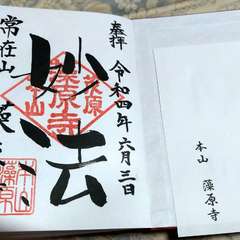 奉拝
令和四年六月三日
妙法
茂原
藻原寺
常在山
藻原
本山
藻原寺